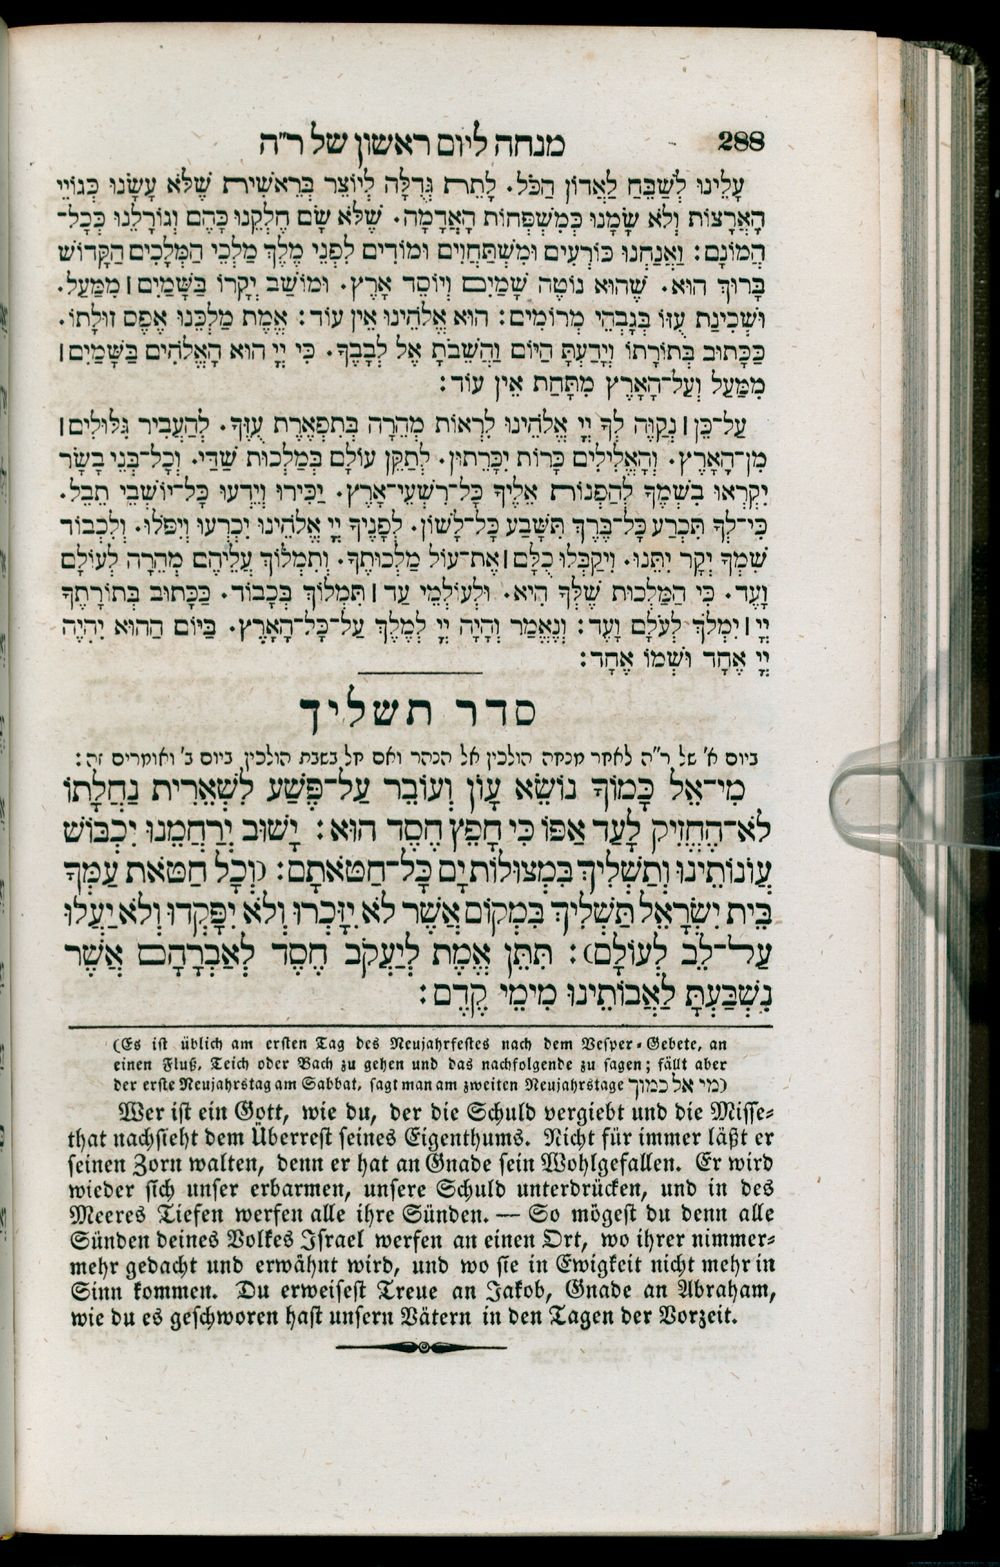 288
מנחה ליום ראשון של ר״ה
עָלֵינוּ לְשַׁבֵּחַ לַאֲדוֹן הַכֹּל. לָתֵת גְּדֻלָּה לְיוֹצֵר בְּרֵאשִׁית שֶׁלֹּא עָשָׂנוּ כְּגוֹיֵי
הָאֲרָצוֹת וְלֹא שָׂמָנוּ כְּמִשְׁפְּחוֹת הָאֲדָמָה. שֶׁלֹּא שָׂם חֶלְקֵנוּ כָּהֶם וְגוֹרָלֵנוּ כְּכָל־
הֲמוֹנָם: וַאֲנַחְנוּ כּוֹרְעִים וּמִשְׁתַּחֲוִים וּמוֹדִים לִפְנֵי מֶלֶךְ מַלְכֵי הַמְּלָכִים הַקָּדוֹשׁ
בָּרוּךְ הוּא. שֶׁהוּא נוֹטֶה שָׁמַיִם וְיוֹסֵד אָרֶץ. וּמוֹשַׁב יְקָרוֹ בַּשָּׁמַיִם ׀ מִמַּעַל.
וּשְׁכִינַת עֻזּוֹ בְּגָבְהֵי מְרוֹמִים: הוּא אֱלֹהֵינוּ אֵין עוֹד: אֱמֶת מַלְכֵּנוּ אֶפֶס זוּלָתוֹ.
כַּכָּתוּב בְּתוֹרָתוֹ וְיָדַעְתָּ הַיּוֹם וַהֲשֵׁבֹתָ אֶל לְבָבֶךָ. כִּי יְיָ הוּא הָאֱלֹהִים בַּשָּׁמַיִם ׀
מִמַּעַל וְעַל־הָאָרֶץ מִתָּחַת אֵין עוֹד:
עַל־כֵּן ׀ נְקַוֶּה לְךָ יְיָ אֱלֹהֵינוּ לִרְאוֹת מְהֵרָה בְּתִפְאֶרֶת עֻזֶּךָ. לְהַעֲבִיר גִּלּוּלִים ׀
מִן־הָאָרֶץ. וְהָאֱלִילִים כָּרוֹת יִכָּרֵתוּן. לְתַקֵּן עוֹלָם בְּמַלְכוּת שַׁדַּי. וְכָל־בְּנֵי בָשָׂר
יִקְרְאוּ בִשְׁמֶךָ לְהַפְנוֹת אֵלֶיךָ כָּל־רִשְׁעֵי־אָרֶץ. יַכִּירוּ וְיֵדְעוּ כָּל־יוֹשְׁבֵי תֵבֵל.
כִּי־לְךָ תִּכְרַע כָּל־בֶּרֶךְ תִּשָּׁבַע כָּל־לָשׁוֹן. לְפָנֶיךָ יְיָ אֱלֹהֵינוּ יִכְרְעוּ וְיִפֹּלוּ. וְלִכְבוֹד
שִׁמְךָ יְקָר יִתֵּנוּ. וִיקַבְּלוּ כֻלָּם ׀ אֶת־עוֹל מַלְכוּתֶךָ. וְתִמְלוֹךְ עֲלֵיהֶם מְהֵרָה לְעוֹלָם
וָעֶד. כִּי הַמַּלְכוּת שֶׁלְּךָ הִיא. וּלְעוֹלְמֵי עַד ׀ תִּמְלוֹךְ בְּכָבוֹד. כַּכָּתוּב בְּתוֹרָתֶךָ
יְיָ ׀ יִמְלֹךְ לְעֹלָם וָעֶד: וְנֶאֱמַר וְהָיָה יְיָ לְמֶלֶךְ עַל־כָּל־הָאָרֶץ. בַּיּוֹם הַהוּא יִהְיֶה
יְיָ אֶחָד וּשְׁמוֹ אֶחָד:
סדר תשליך
ביום א׳ של ר״ה לאחר מנחה הולכין אל הנהר ואם חל בשבת הולכין ביום ב׳ ואומרים זה:
מִי־אֵל כָּמוֹךָ נוֹשֵׂא עָוֹן וְעוֹבֵר עַל־פֶּשַׁע לִשְׁאֵרִית נַחֲלָתוֹ
לֹא־הֶחֱזִיק לָעַד אַפּוֹ כִּי חָפֵץ חֶסֶד הוּא: יָשׁוּב יְרַחֲמֵנוּ יִכְבּוֹשׁ
עֲוֹנוֹתֵינוּ וְתַשְׁלִיךְ בִּמְצוּלוֹת יָם כָּל־חַטֹּאתָם: (וְכָל חַטֹּאת עַמְּךָ
בֵּית יִשְׂרָאֵל תַּשְׁלִיךְ בִּמְקוֹם אֲשֶׁר לֹא יִזָּכְרוּ וְלֹא יִפָּקְדוּ וְלֹא יַעֲלוּ
עַל־לֵב לְעוֹלָם): תִּתֵּן אֱמֶת לְיַעֲקֹב חֶסֶד לְאַבְרָהָם אֲשֶׁר
נִשְׁבַּעְתָּ לַאֲבוֹתֵינוּ מִימֵי קֶדֶם:
(Es ist üblich am ersten Tag des Neujahrfestes nach dem Vesper-Gebete, an
einen Fluß, Teich oder Bach zu gehen und das nachfolgende zu sagen; fällt aber
der erste Neujahrstag am Sabbat, sagt man am zweiten Neujahrstage מי אל כמוך)
Wer ist ein Gott, wie du, der die Schuld vergiebt und die Misse-
that nachsieht dem Überrest seines Eigenthums. Nicht für immer läßt er
seinen Zorn walten, denn er hat an Gnade sein Wohlgefallen. Er wird
wieder sich unser erbarmen, unsere Schuld unterdrücken, und in des
Meeres Tiefen werfen alle ihre Sünden. — So mögest du denn alle
Sünden deines Volkes Israel werfen an einen Ort, wo ihrer nimmer-
mehr gedacht und erwähnt wird, und wo sie in Ewigkeit nicht mehr in
Sinn kommen. Du erweisest Treue an Jakob, Gnade an Abraham,
wie du es geschworen hast unsern Vätern in den Tagen der Vorzeit.